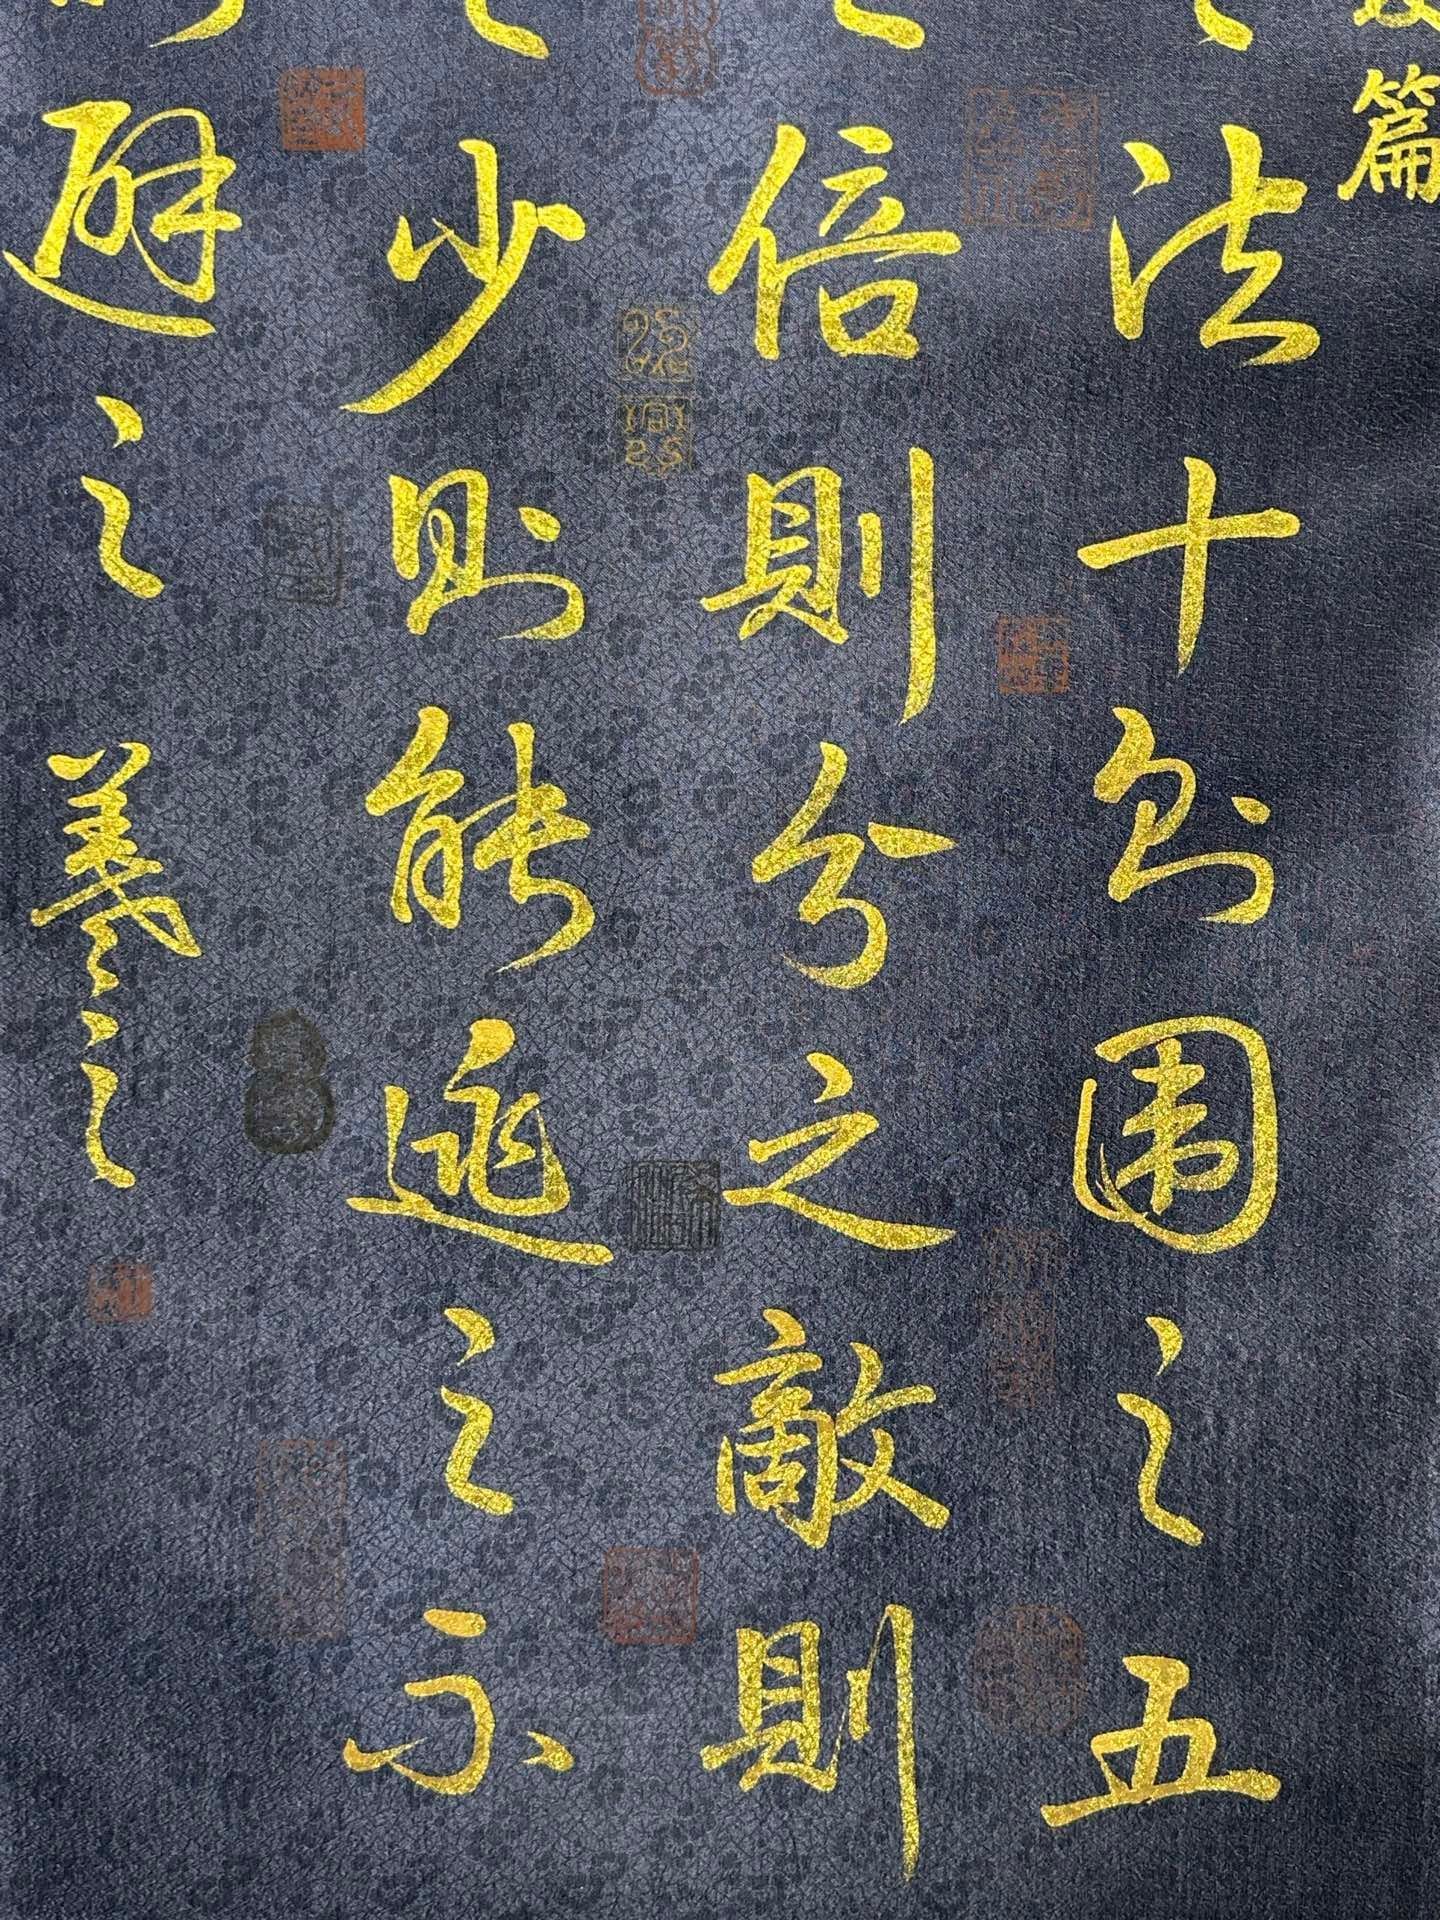 篇
法十則围之五
倍則分之敵則
少則能逃之不
避之羲之